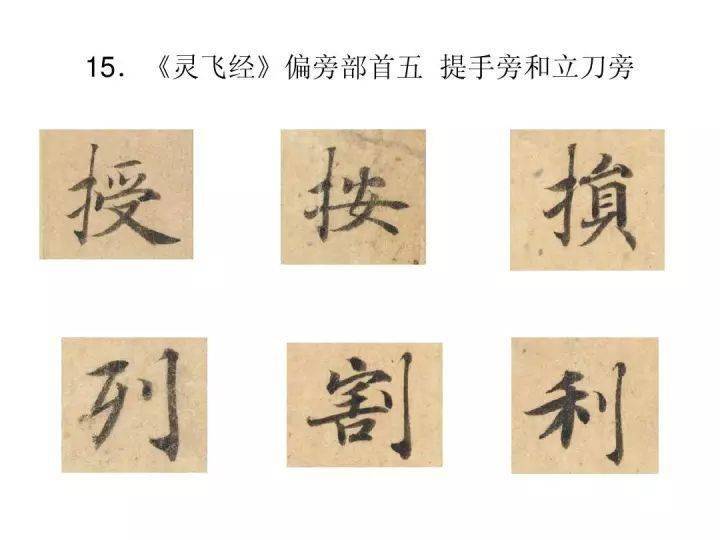 15．《灵飞经》偏旁部首五 提手旁和立刀旁
授 按 損
列 割 利